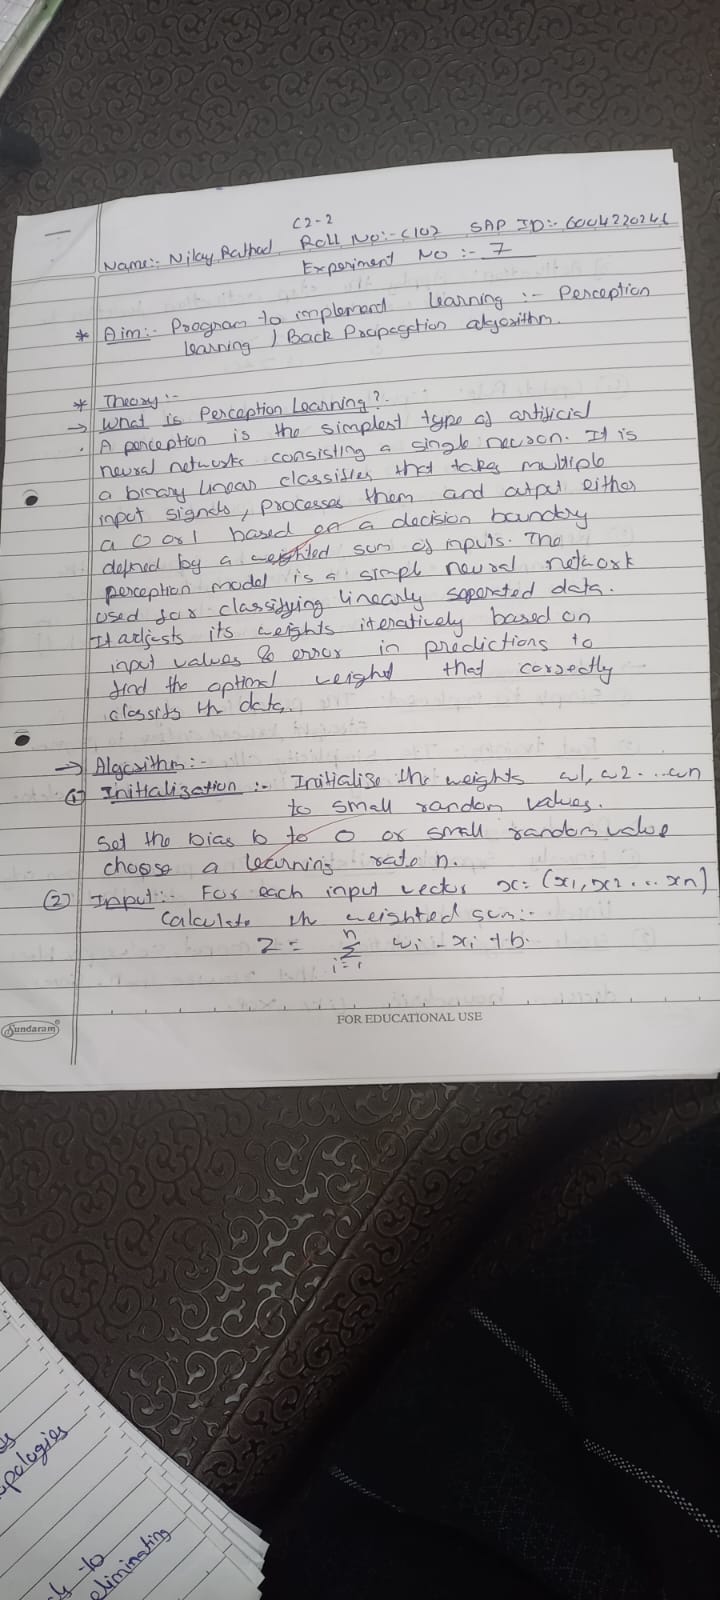 C2-2
Name:- Nilay Rathod Roll No:- C107 SAP ID:- 6004220246
Experiment No :- 7
* Aim:- Program to implement learning :- Perception
learning / Back Propagation algorithm.
* Theory :-
→ What is Perception Learning?.
. A perception is the simplest type of artificial
neural network consisting a single neuron. It is
a binary linear classifier that takes multiple
input signals, processes them and output either
a 0 or 1 based on a decision boundry
defined by a weighted sum of inputs. The
perception model is a simpl neural network
used for classifying linearly seperated data.
It adjests its weights iteratively based on
input values & error in predictions to
find the optimal weight that correctly
classify th data.
→ Algorithm :-
(1) Initialization :- Initialise the weights w1, w2 ... wn
to small random values.
Set the bias b to 0 or small random value
choose a learning rate n.
(2) Input :- For each input vector x = (x1, x2 ... xn)
Calculate th weighted sum:-
Z = n Σ i=1 wi - xi + b.
Sundaram
FOR EDUCATIONAL USE
apologies
to
eliminating